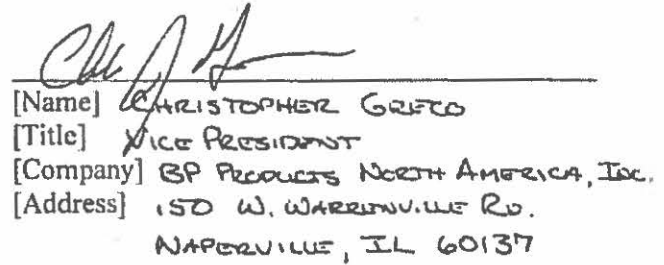 [Name] CHRISTOPHER GRECO
[Title] VICE PRESIDENT
[Company] BP PRODUCTS NORTH AMERICA, INC.
[Address] 150 W. WARRENVILLE RD.
NAPERVILLE, IL 60137